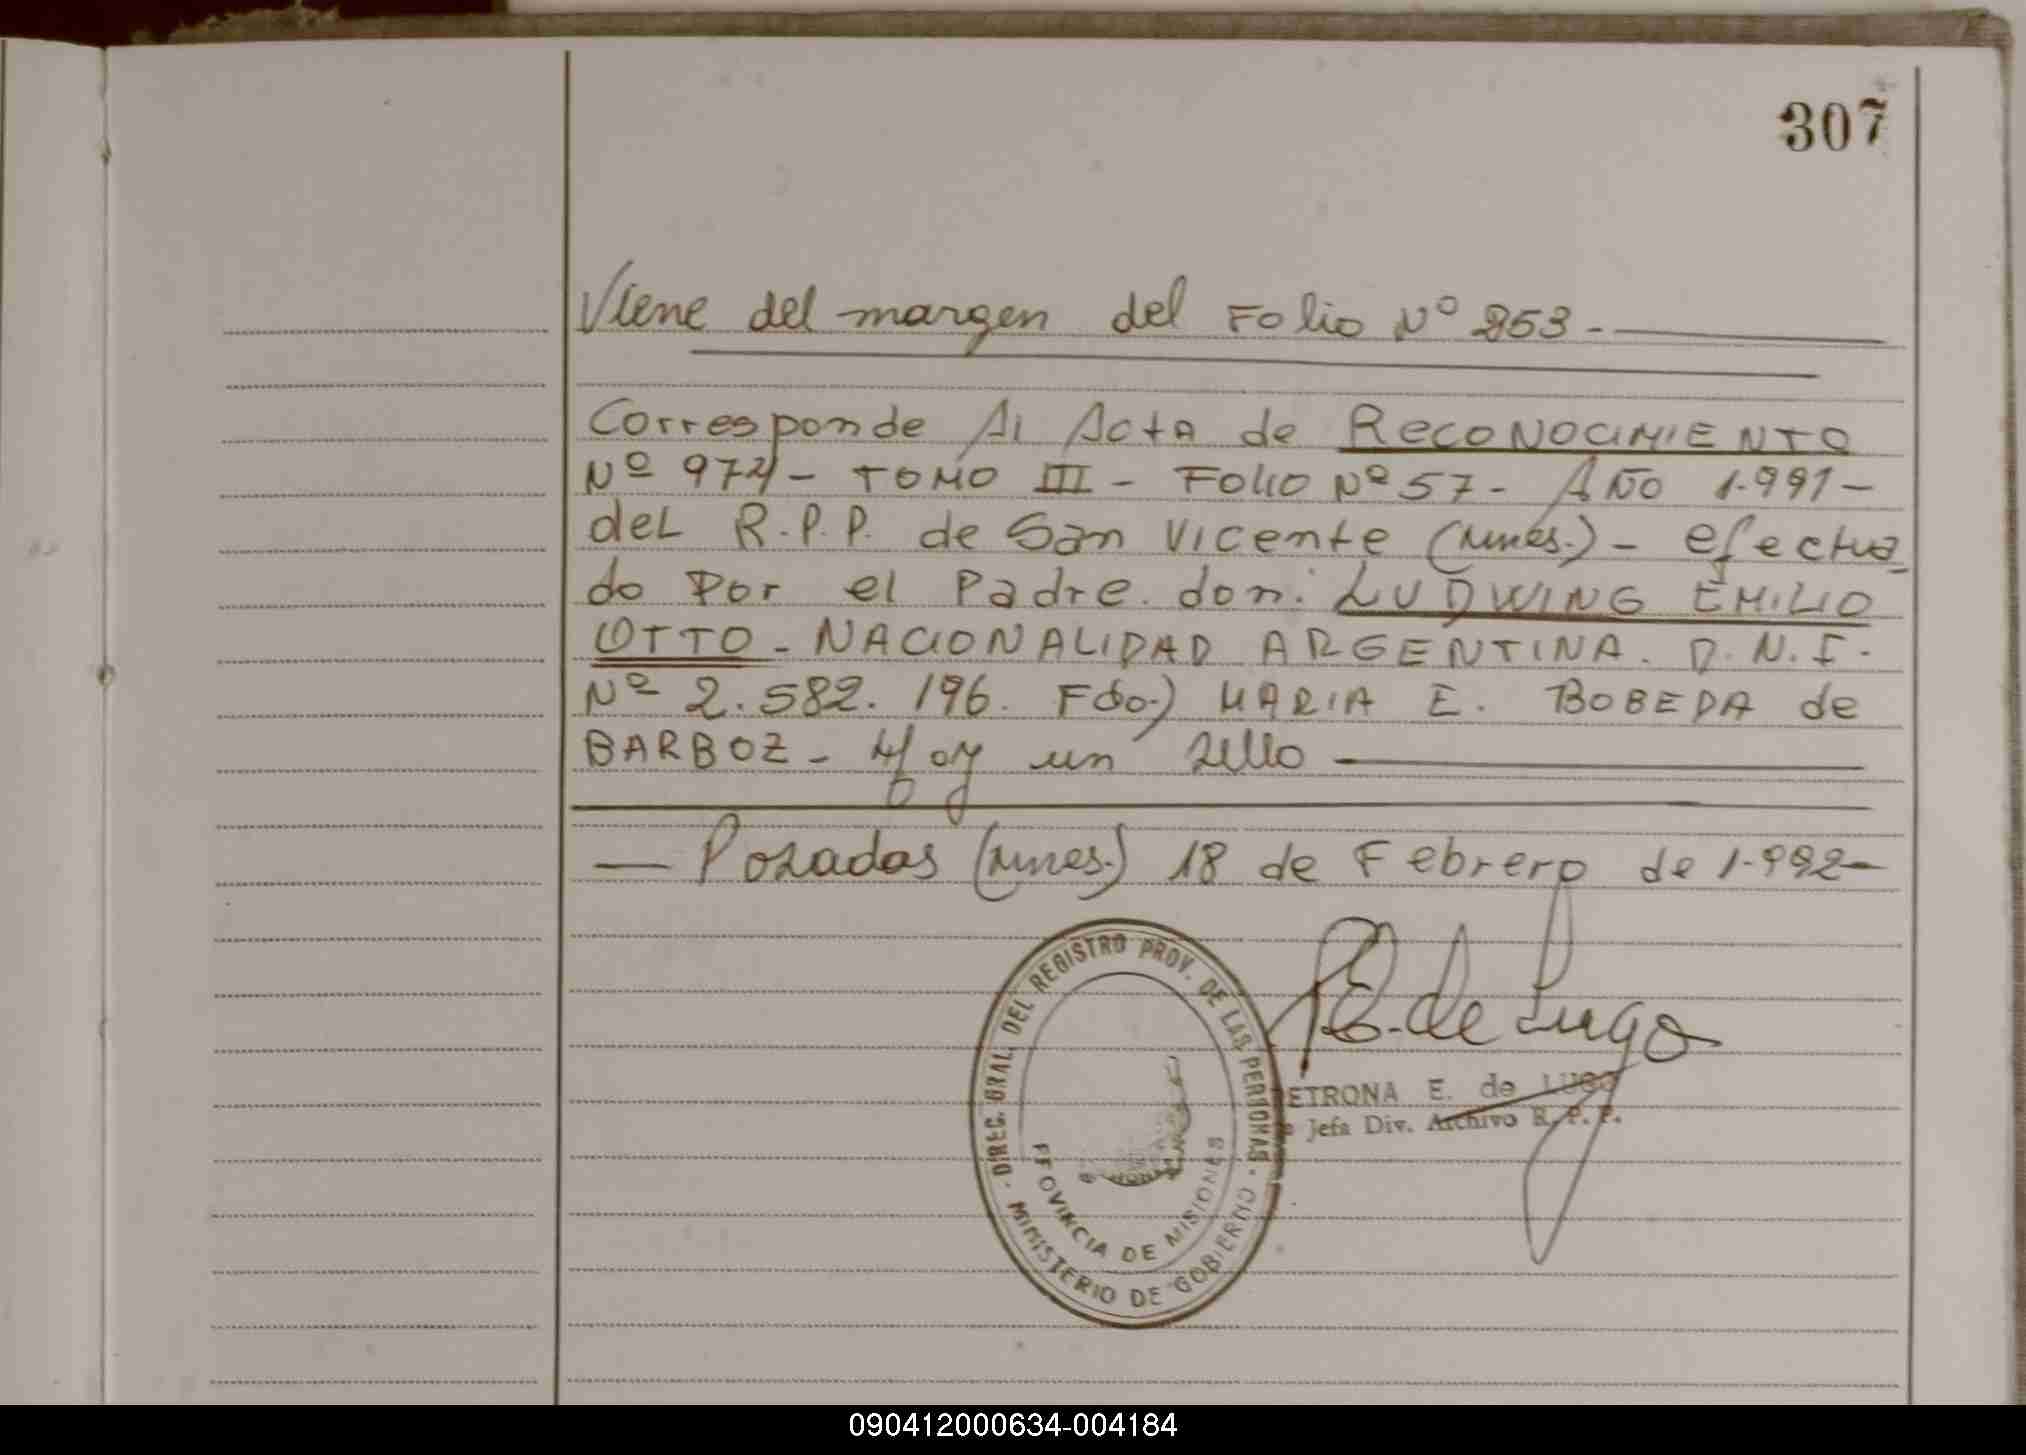 307
Viene del margen del Folio Nº 253.-
Corresponde Al Acta de RECONOCIMIENTO
Nº 972 - TOMO III - Folio Nº 57 - AÑO 1.991 -
del R.P.P. de San Vicente (Mnes.) - efectua
do Por el Padre. don: LUDWING EMILIO
OTTO - NACIONALIDAD ARGENTINA. D.N.I.
Nº 2.582.196. Fdo.) MARIA E. BOBEDA de
BARBOZ - Hoy un sello
— Posadas (Mnes.) 18 de Febrero de 1.992-
P E. de Lugo
ETRONA E. de LUGO
Jefa Div. Archivo R.P.P.
DIREC. GRAL. DEL REGISTRO PROV. DE LAS PERSONAS
PROVINCIA DE MISIONES
MINISTERIO DE GOBIERNO
090412000634-004184